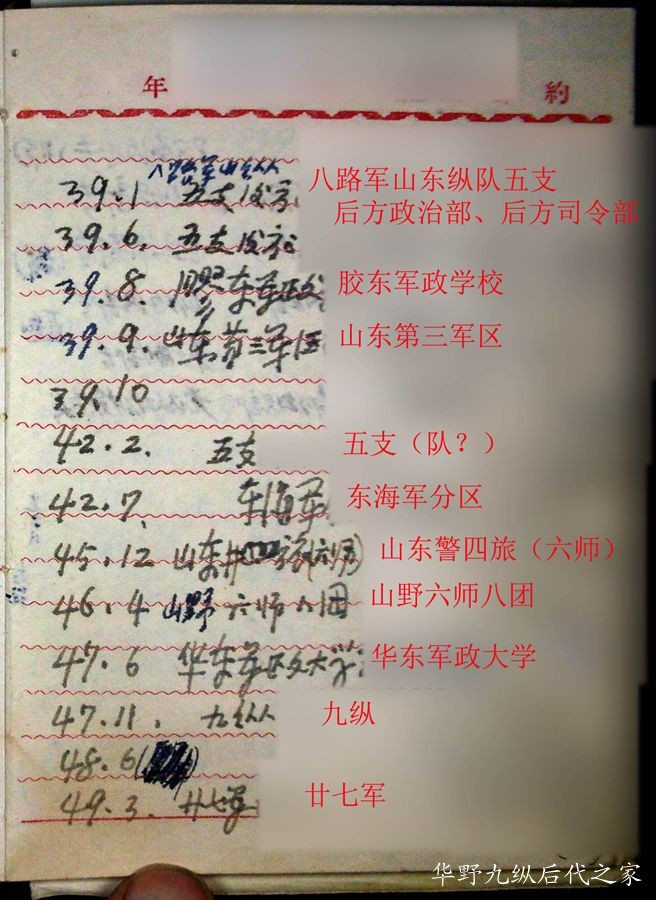 年 約
39.1 八路军山纵 五支后方 八路军山东纵队五支
39.6. 五支后方 后方政治部、后方司令部
39.8. 胶东军政 胶东军政学校
39.9. 山东第三军区 山东第三军区
39.10
42.2. 五支 五支（队？）
42.7. 东海军 东海军分区
45.12 山东 旅(六师) 山东警四旅（六师）
46.4 山野 六师八团 山野六师八团
47.6 华东军政大学 华东军政大学
47.11. 九纵 九纵
48.6
49.3. 廿七军 廿七军
华野九纵后代之家